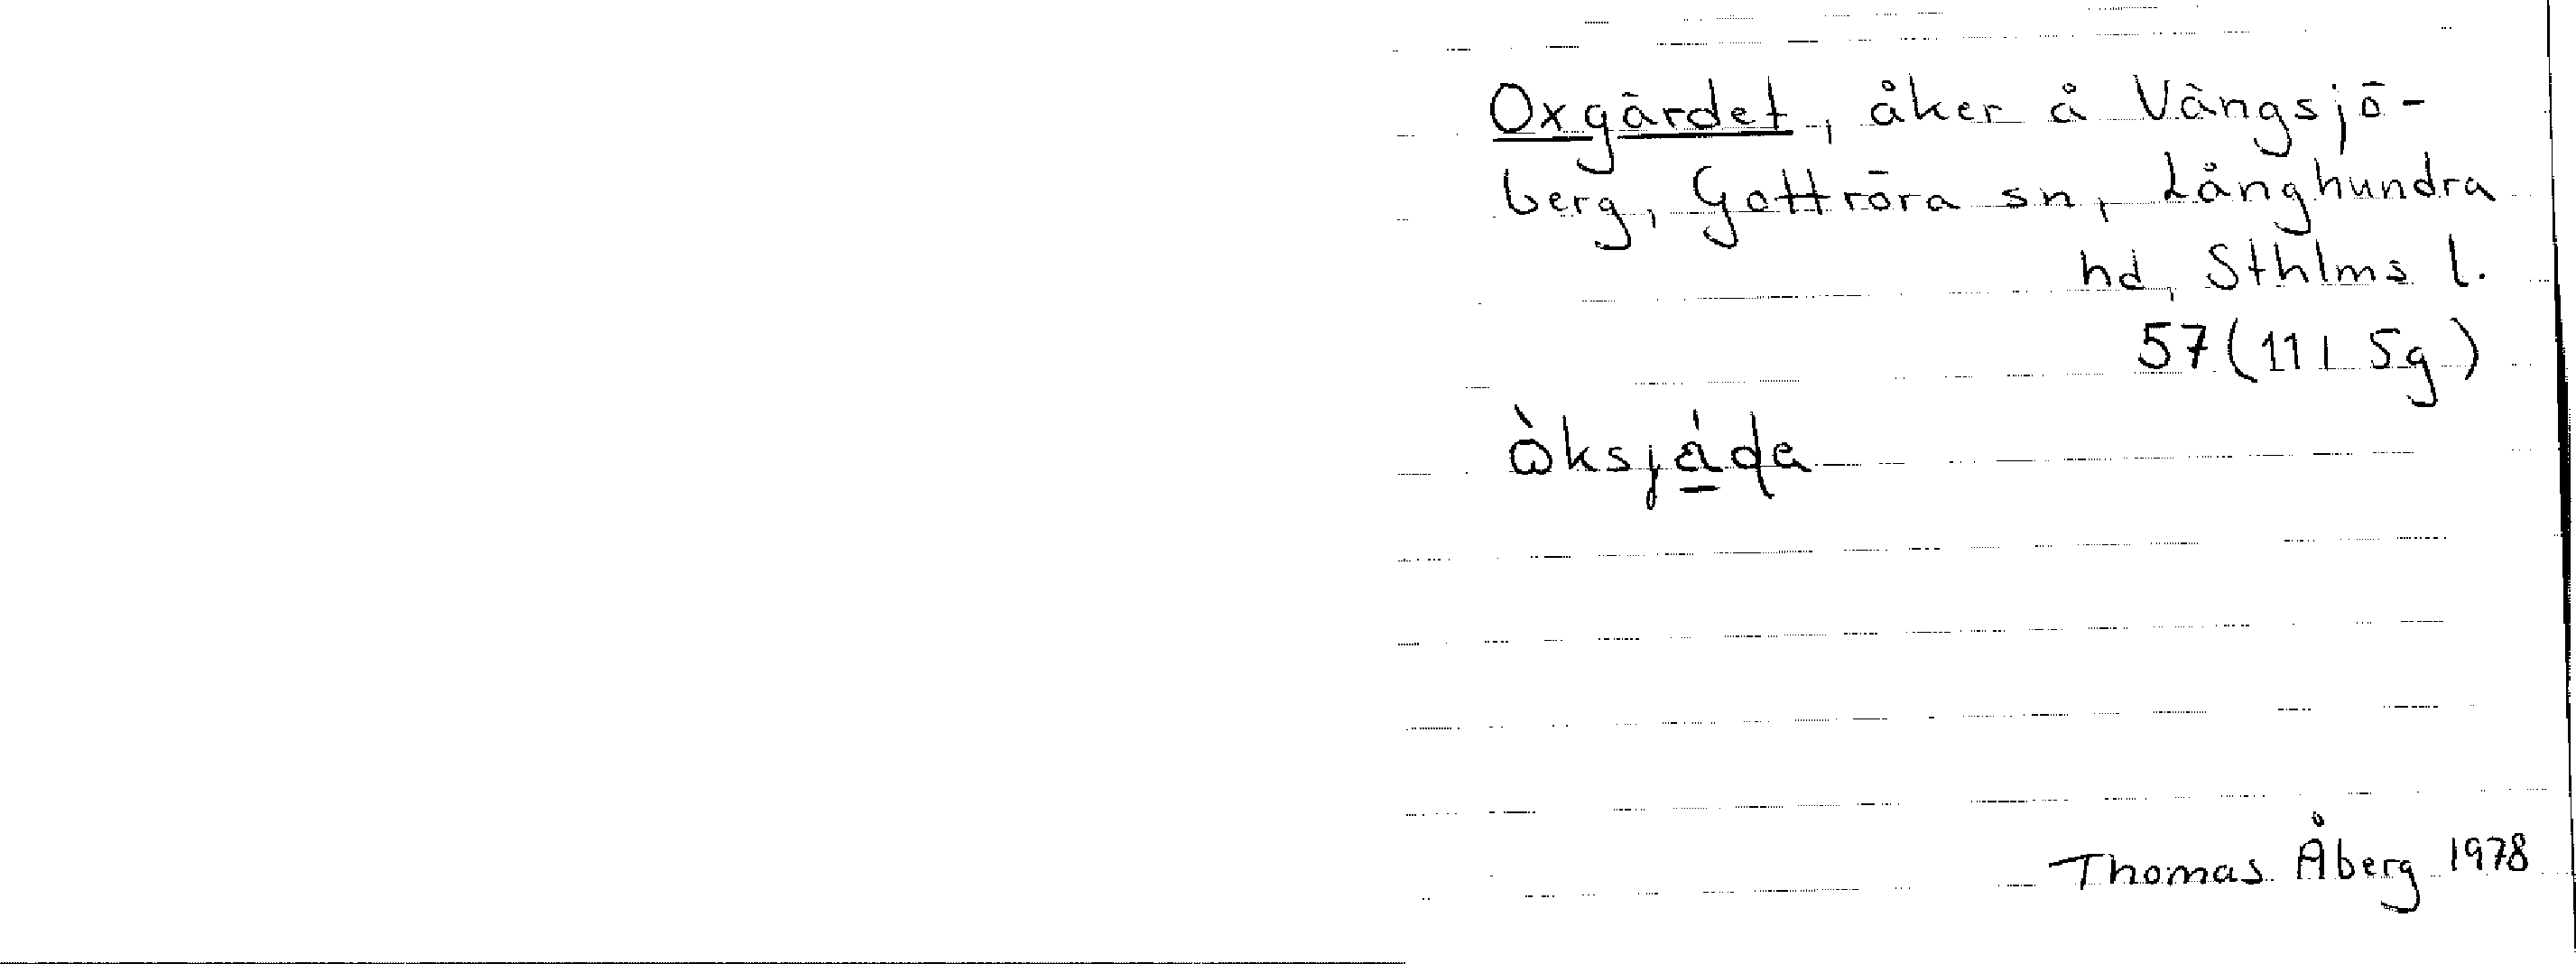 Oxgärdet, åker å Vängsjö-
berg, Gottröra sn, Långhundra
hd, Sthlms l.
57 (11I 5g)
òksjá̱da
Thomas Åberg 1978